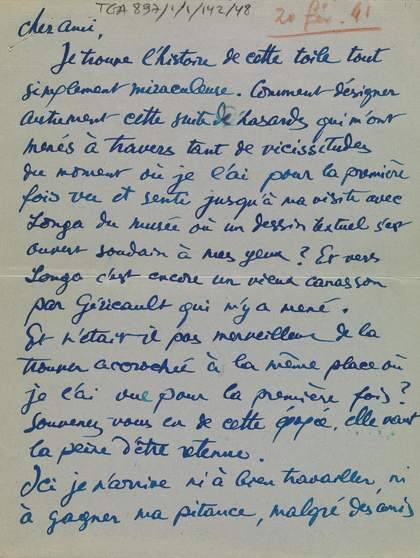 TGA 897/1/1/142/48
20 fév. 41
cher ami,
Je trouve l'histoire de cette toile tout
simplement miraculeuse. Comment désigner
autrement cette suite de hasards qui m'ont
menés à travers tant de vicissitudes
du moment où je l'ai pour la première
fois vu et senti jusqu'à ma visite avec
Longa du musée où un dessin textuel s'est
ouvert soudain à mes yeux ? Et vers
Longa c'est encore un vieux canasson
par Géricault qui m'y a mené.
Et n'était-il pas merveilleux de la
trouver accrochée à la même place où
je l'ai vue pour la première fois ?
Souvenez-vous en de cette épopée, elle vaut
la peine d'être retenue.
Ici je n'arrive ni à bien travailler, ni
à gagner ma pitance, malgré des amis